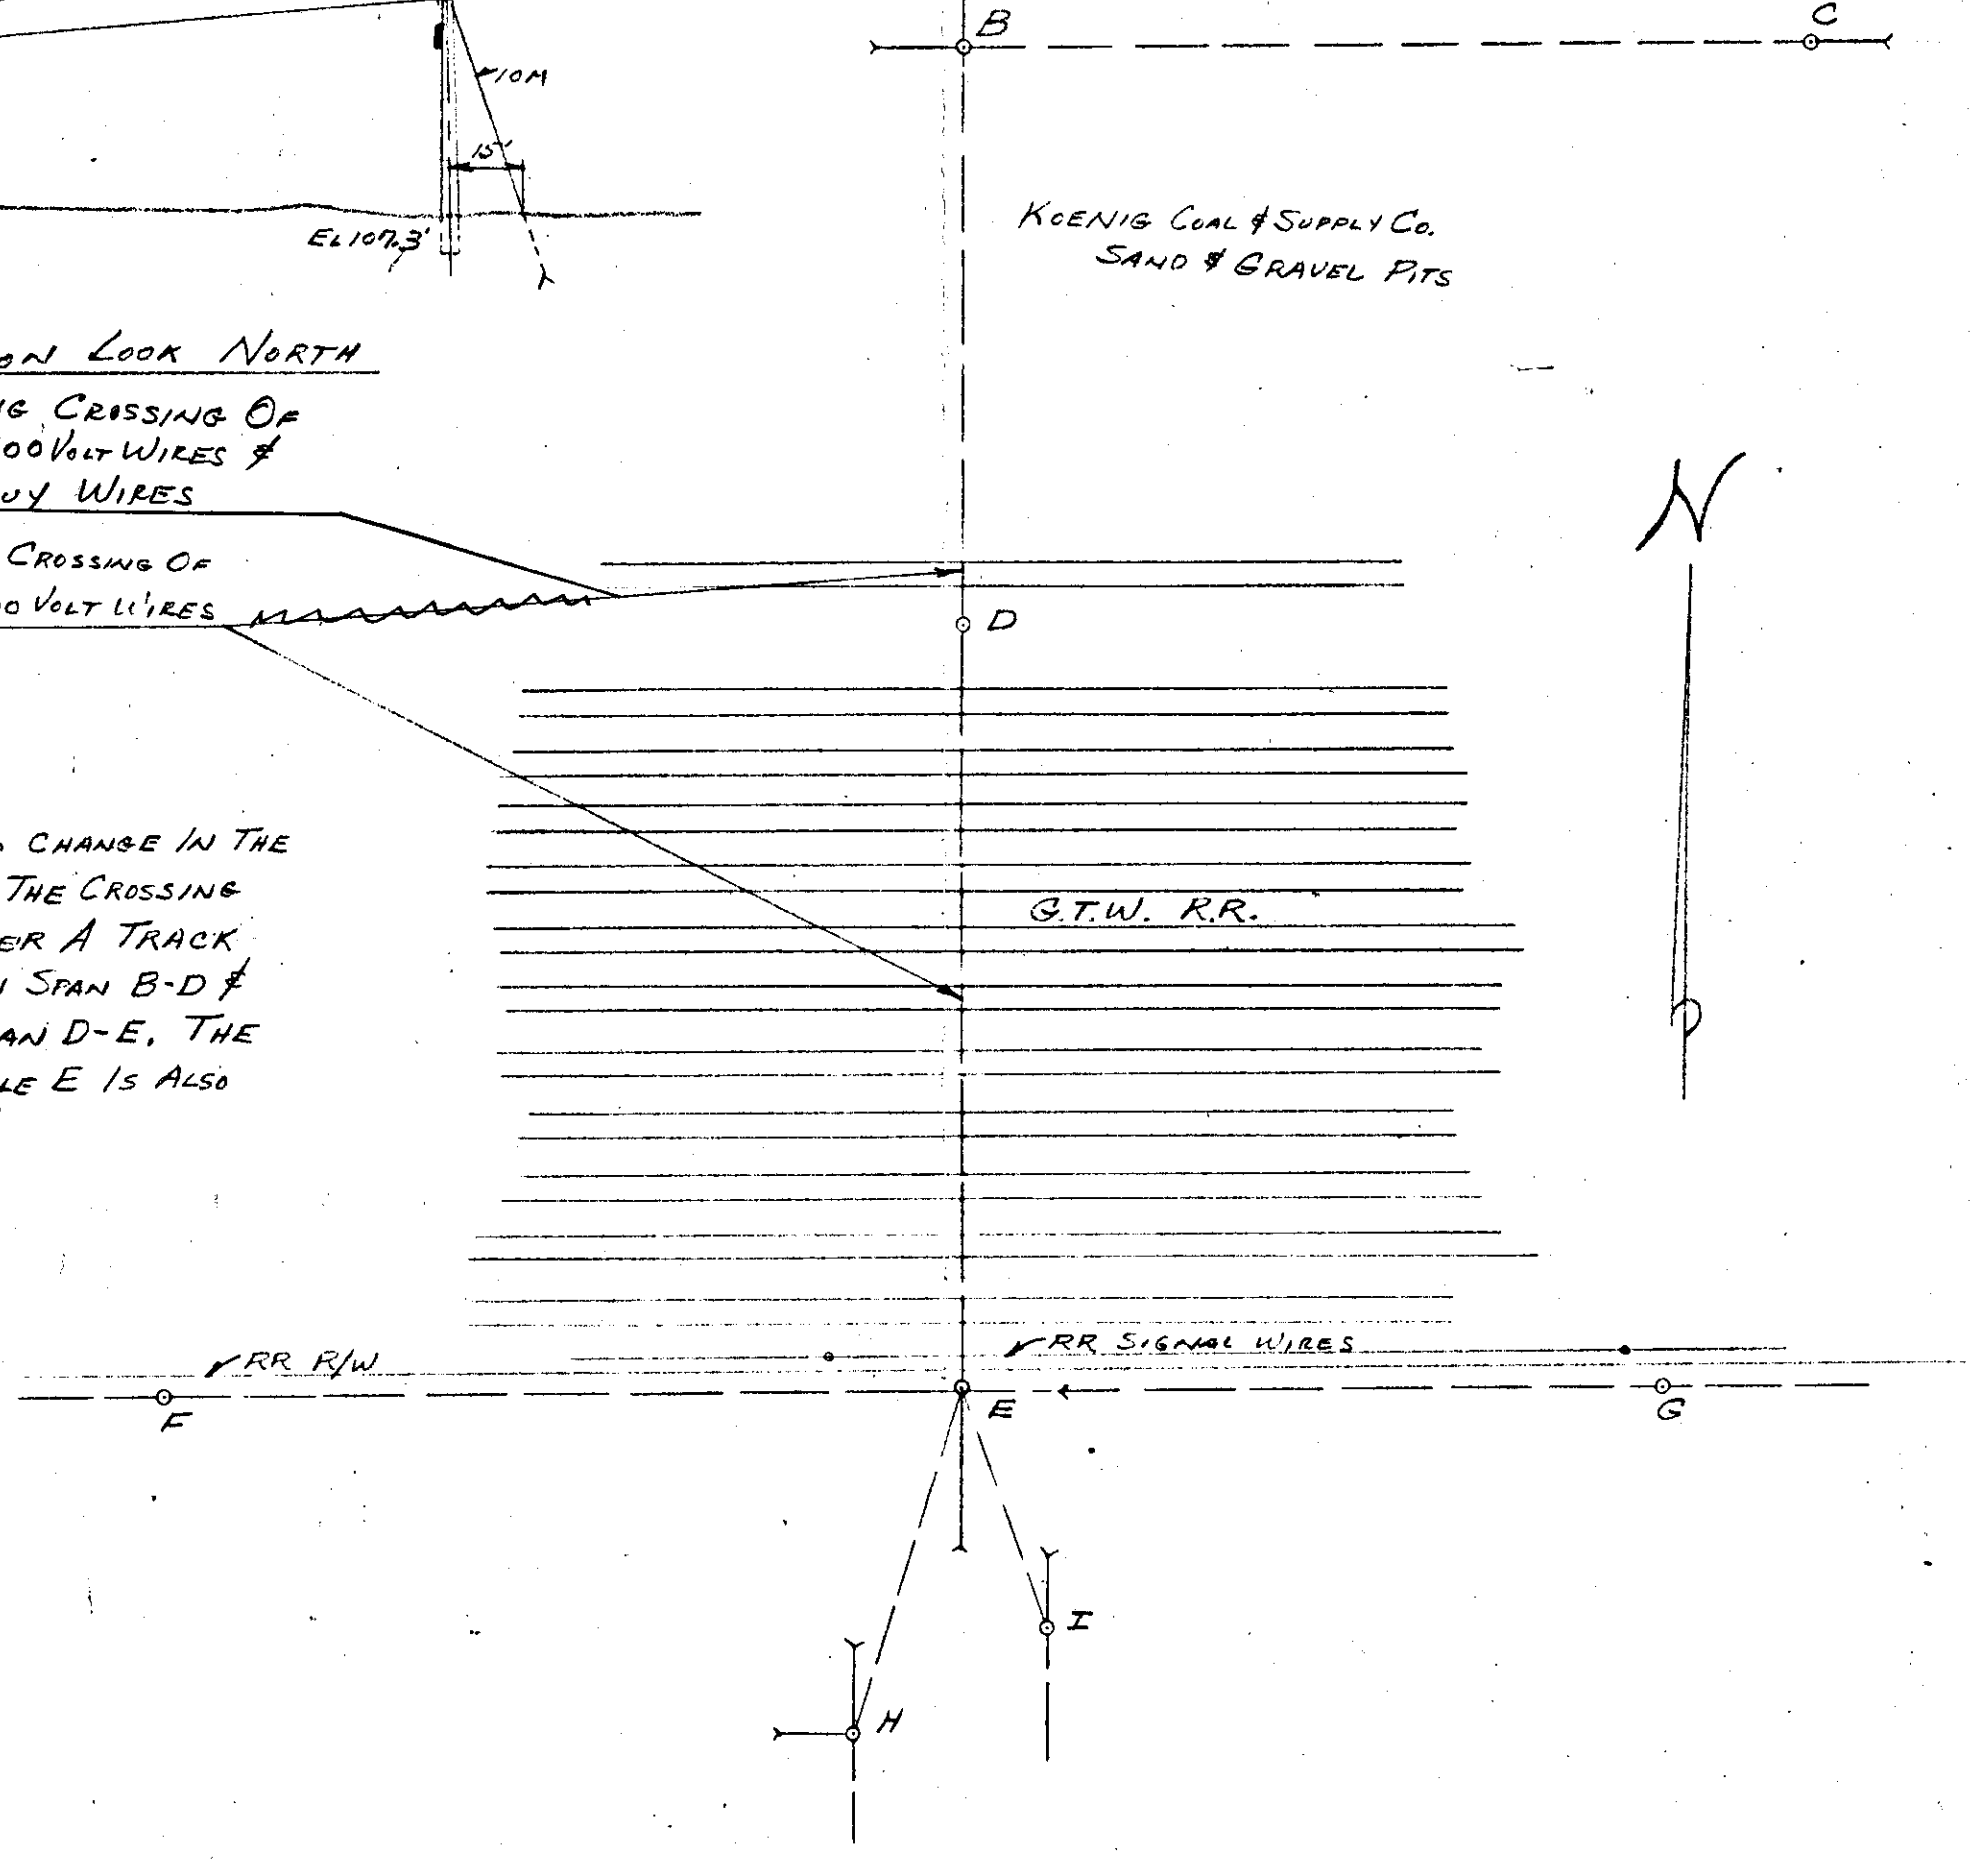 B
C
10M
15'
EL 107.3'
KOENIG COAL & SUPPLY CO.
SAND & GRAVEL PITS
LOOK NORTH
CROSSING OF
00 VOLT WIRES &
WIRES
CROSSING OF
0 VOLT WIRES
D
N
CHANGE IN THE
THE CROSSING
A TRACK
SPAN B-D &
D-E. THE
E IS ALSO
G.T.W. R.R.
RR R/W
RR SIGNAL WIRES
F
E
G
I
H